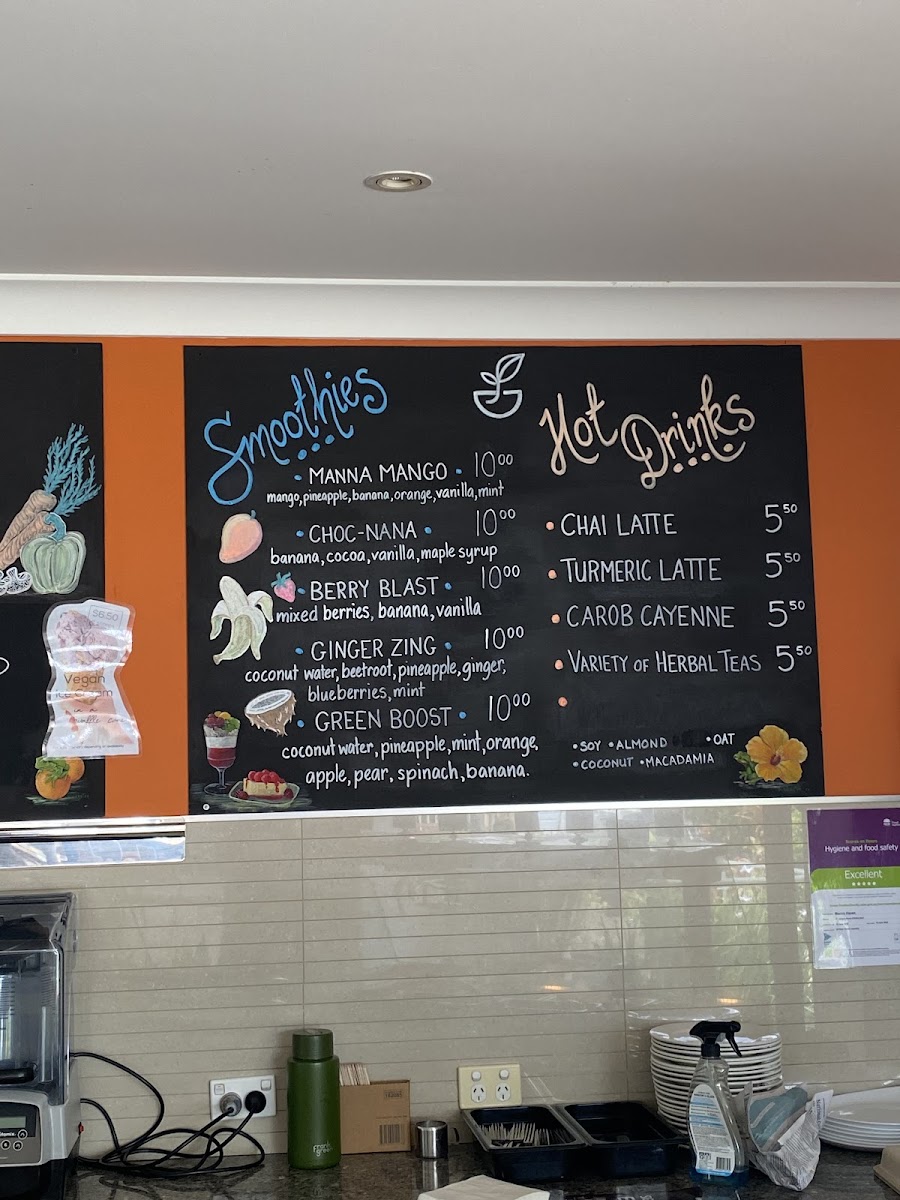 Smoothies
• MANNA MANGO • 10⁰⁰
mango, pineapple, banana, orange, vanilla, mint
• CHOC-NANA • 10⁰⁰
banana, cocoa, vanilla, maple syrup
• BERRY BLAST • 10⁰⁰
mixed berries, banana, vanilla
• GINGER ZING • 10⁰⁰
coconut water, beetroot, pineapple, ginger,
blueberries, mint
• GREEN BOOST • 10⁰⁰
coconut water, pineapple, mint, orange,
apple, pear, spinach, banana.
Hot Drinks
• CHAI LATTE 5⁵⁰
• TURMERIC LATTE 5⁵⁰
• CAROB CAYENNE 5⁵⁰
• VARIETY OF HERBAL TEAS 5⁵⁰
• SOY • ALMOND • OAT
• COCONUT • MACADAMIA
$6.50
Vegan
ice cream
in a
Hygiene and food safety
Excellent
★★★★★
frank
green